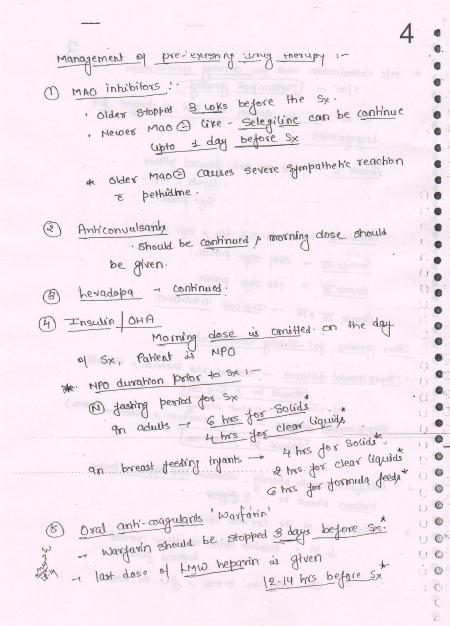 4
Management of pre-existing drug therapy :-
① MAO inhibitors :-
· Older stopped 3 wks before the Sx.
· Newer MAO⊖ like - Selegiline can be continue
upto 1 day before Sx
* Older MAO⊖ causes severe sympathetic reaction
c̄ pethidine.
② Anticonvulsants
· Should be continued & morning dose should
be given.
③ Levadopa - continued.
④ Insulin / OHA
Morning dose is omitted on the day
of Sx, Patient is NPO
* NPO duration prior to Sx :-
(N) fasting period for Sx
In adults → 6 hrs for Solids*
4 hrs for clear liquids*
In breast feeding infants → 4 hrs for Solids*
2 hrs for clear liquids*
6 hrs for formula feeds*
⑤ Oral anti-coagulants 'Warfarin'
→ Warfarin should be stopped 3 days before Sx.*
→ last dose of LMW heparin is given
12-14 hrs before Sx*